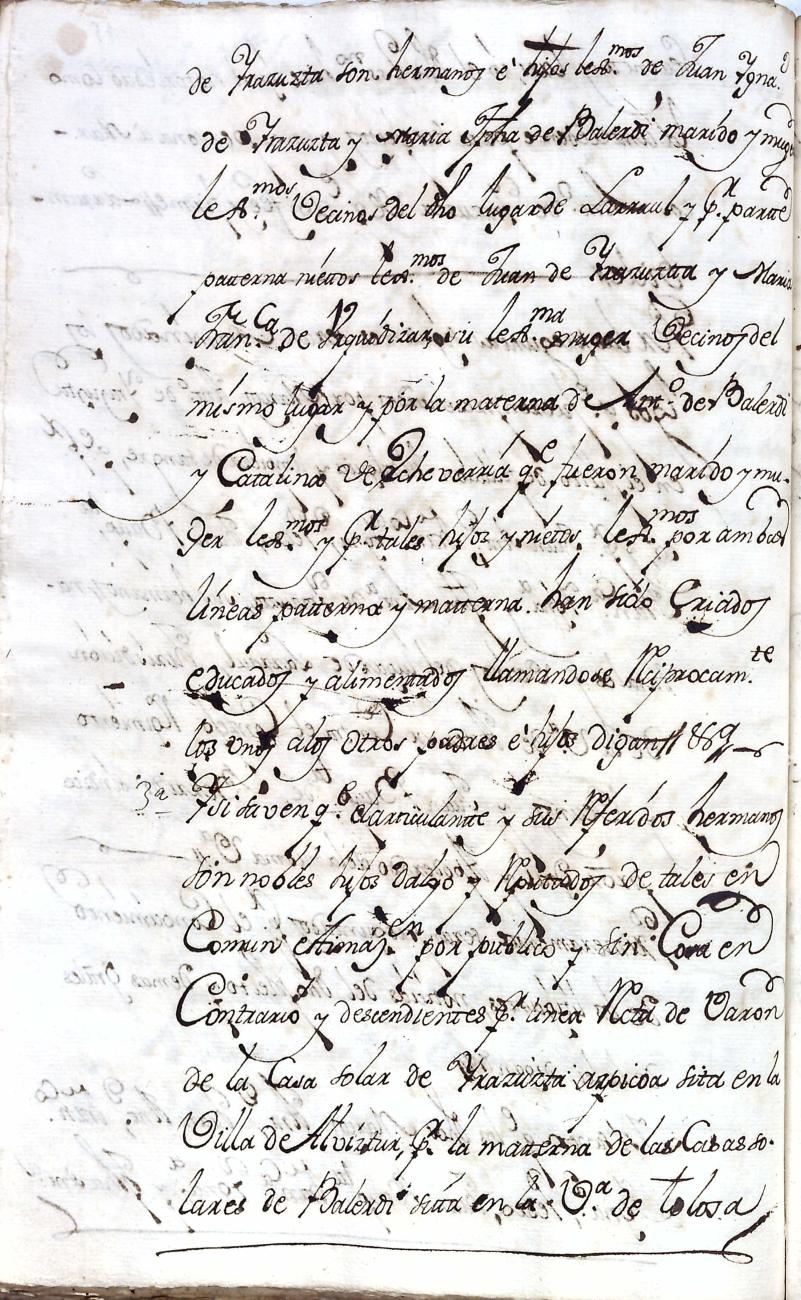 de Yrazuzta son hermanos é hijos lex.mos de Juan Ygna.o
de Yrazuzta y maria Jpha de Balerdi marido y muger
lex.mos Vecinos del dho lugar de Larraul y p.r parte
patterna nietos lex.mos de Juan de Yrazuzta y Maria
Fran.ca de su lex.ma muger Vecinos del
mismo lugar y por la materna de Ant.o de Balerdi
y Catalina de Echeverria q.e fueron marido y mu-
ger lex.mos y p.r tales hijos y nietos lex.mos por ambas
líneas patterna y matterna han sido Criados
educados y alimentados llamandose Reciprocam.te
los unos a los otros padres é hijos digan &a
3a Ysi saven q.e el articulante y sus Referidos hermanos
son nobles hijos dalgo y Reputados de tales en
Comun estimaz.en por publico y sin Cosa en
Contrario y descendientes p.r linea Recta de Varon
de la Casa solar de Yrazuzta azpicoa sita en la
Villa de Alviztur, p.r la matterna de las Casas so-
lares de Balerdi sita en la V.a de tolosa